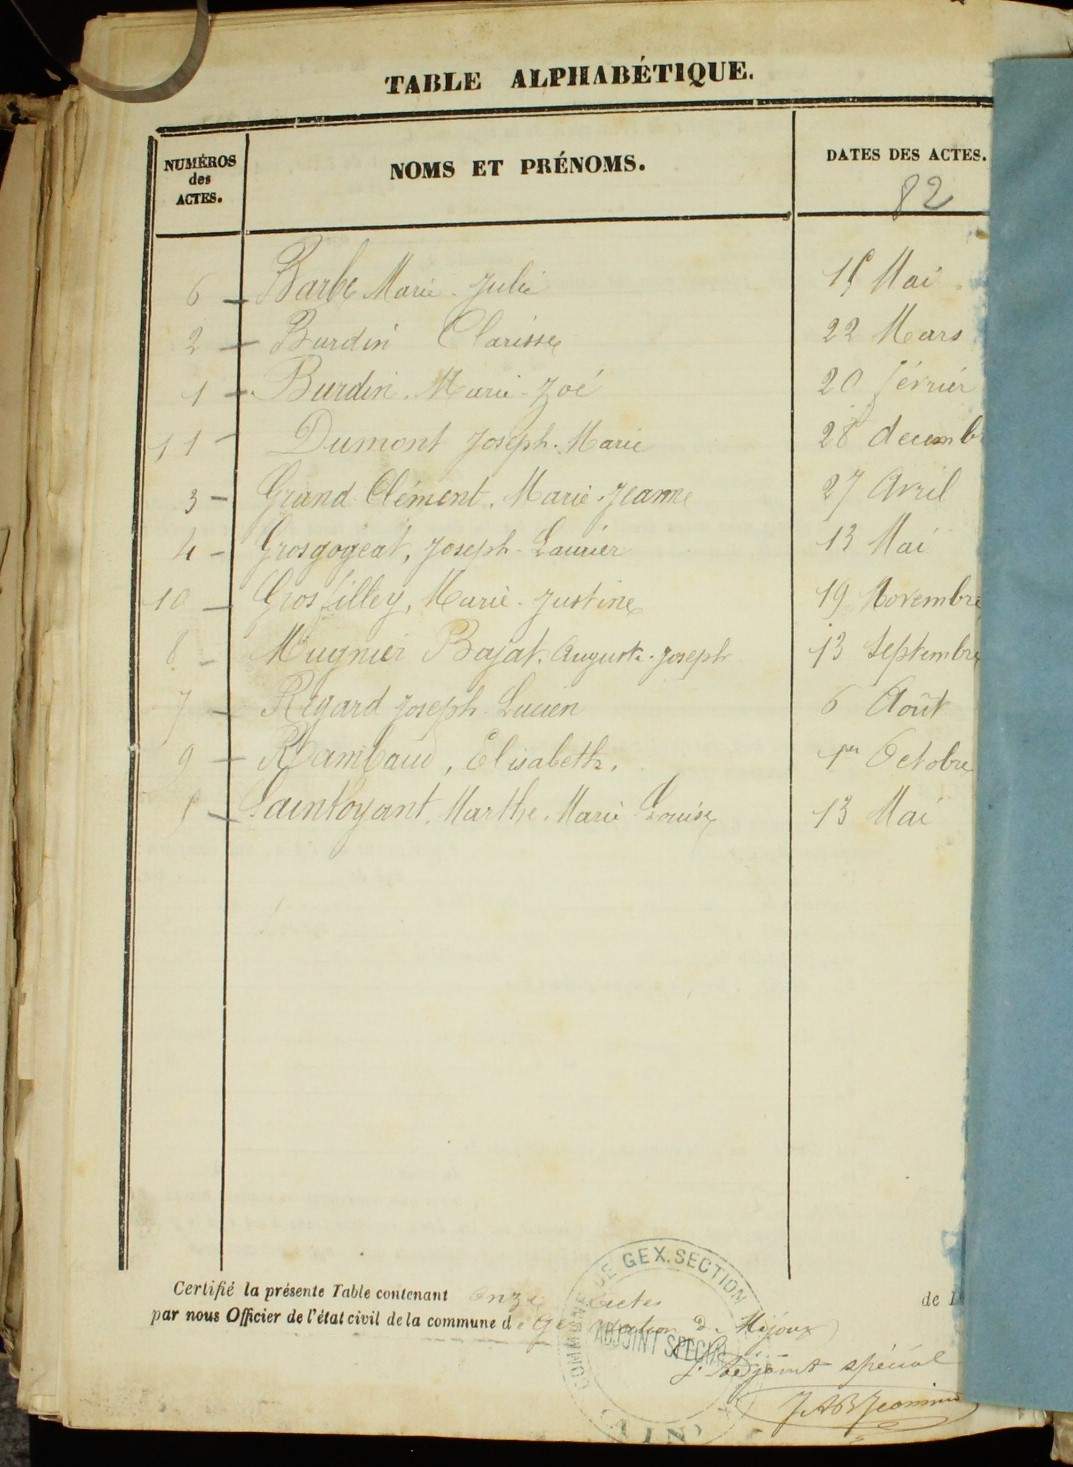 TABLE ALPHABÉTIQUE.
NUMÉROS des ACTES.
NOMS ET PRÉNOMS.
DATES DES ACTES.
82
6 - Barbe Marie-Julie 15 Mai
2 - Burdin Clarisse 22 Mars
1 - Burdin. Marie-Zoé 20 février
11 - Dumont Joseph-Marie 28 decemb
3 - Grand Clément. Marie-Jeanne 27 Avril
4 - Grosgogeat, Joseph- 13 Mai
10 - Grosfilley, Marie-Justine 19 Novembre
8 - Mugnier Bajat. Auguste-Joseph 13 Septembre
7 - Rigard Joseph Lucien 6 Août
9 - Rambaud, Elisabeth. 1er Octobre
5 - Saintoyant. Marthe. Marie Louise 13 Mai
Certifié la présente Table contenant onze actes de
par nous Officier de l'état civil de la commune de Gex section de Mijoux
L'adjoint spécial
COMMUNE DE GEX. SECTION
ADJOINT SPECIAL
(AIN)